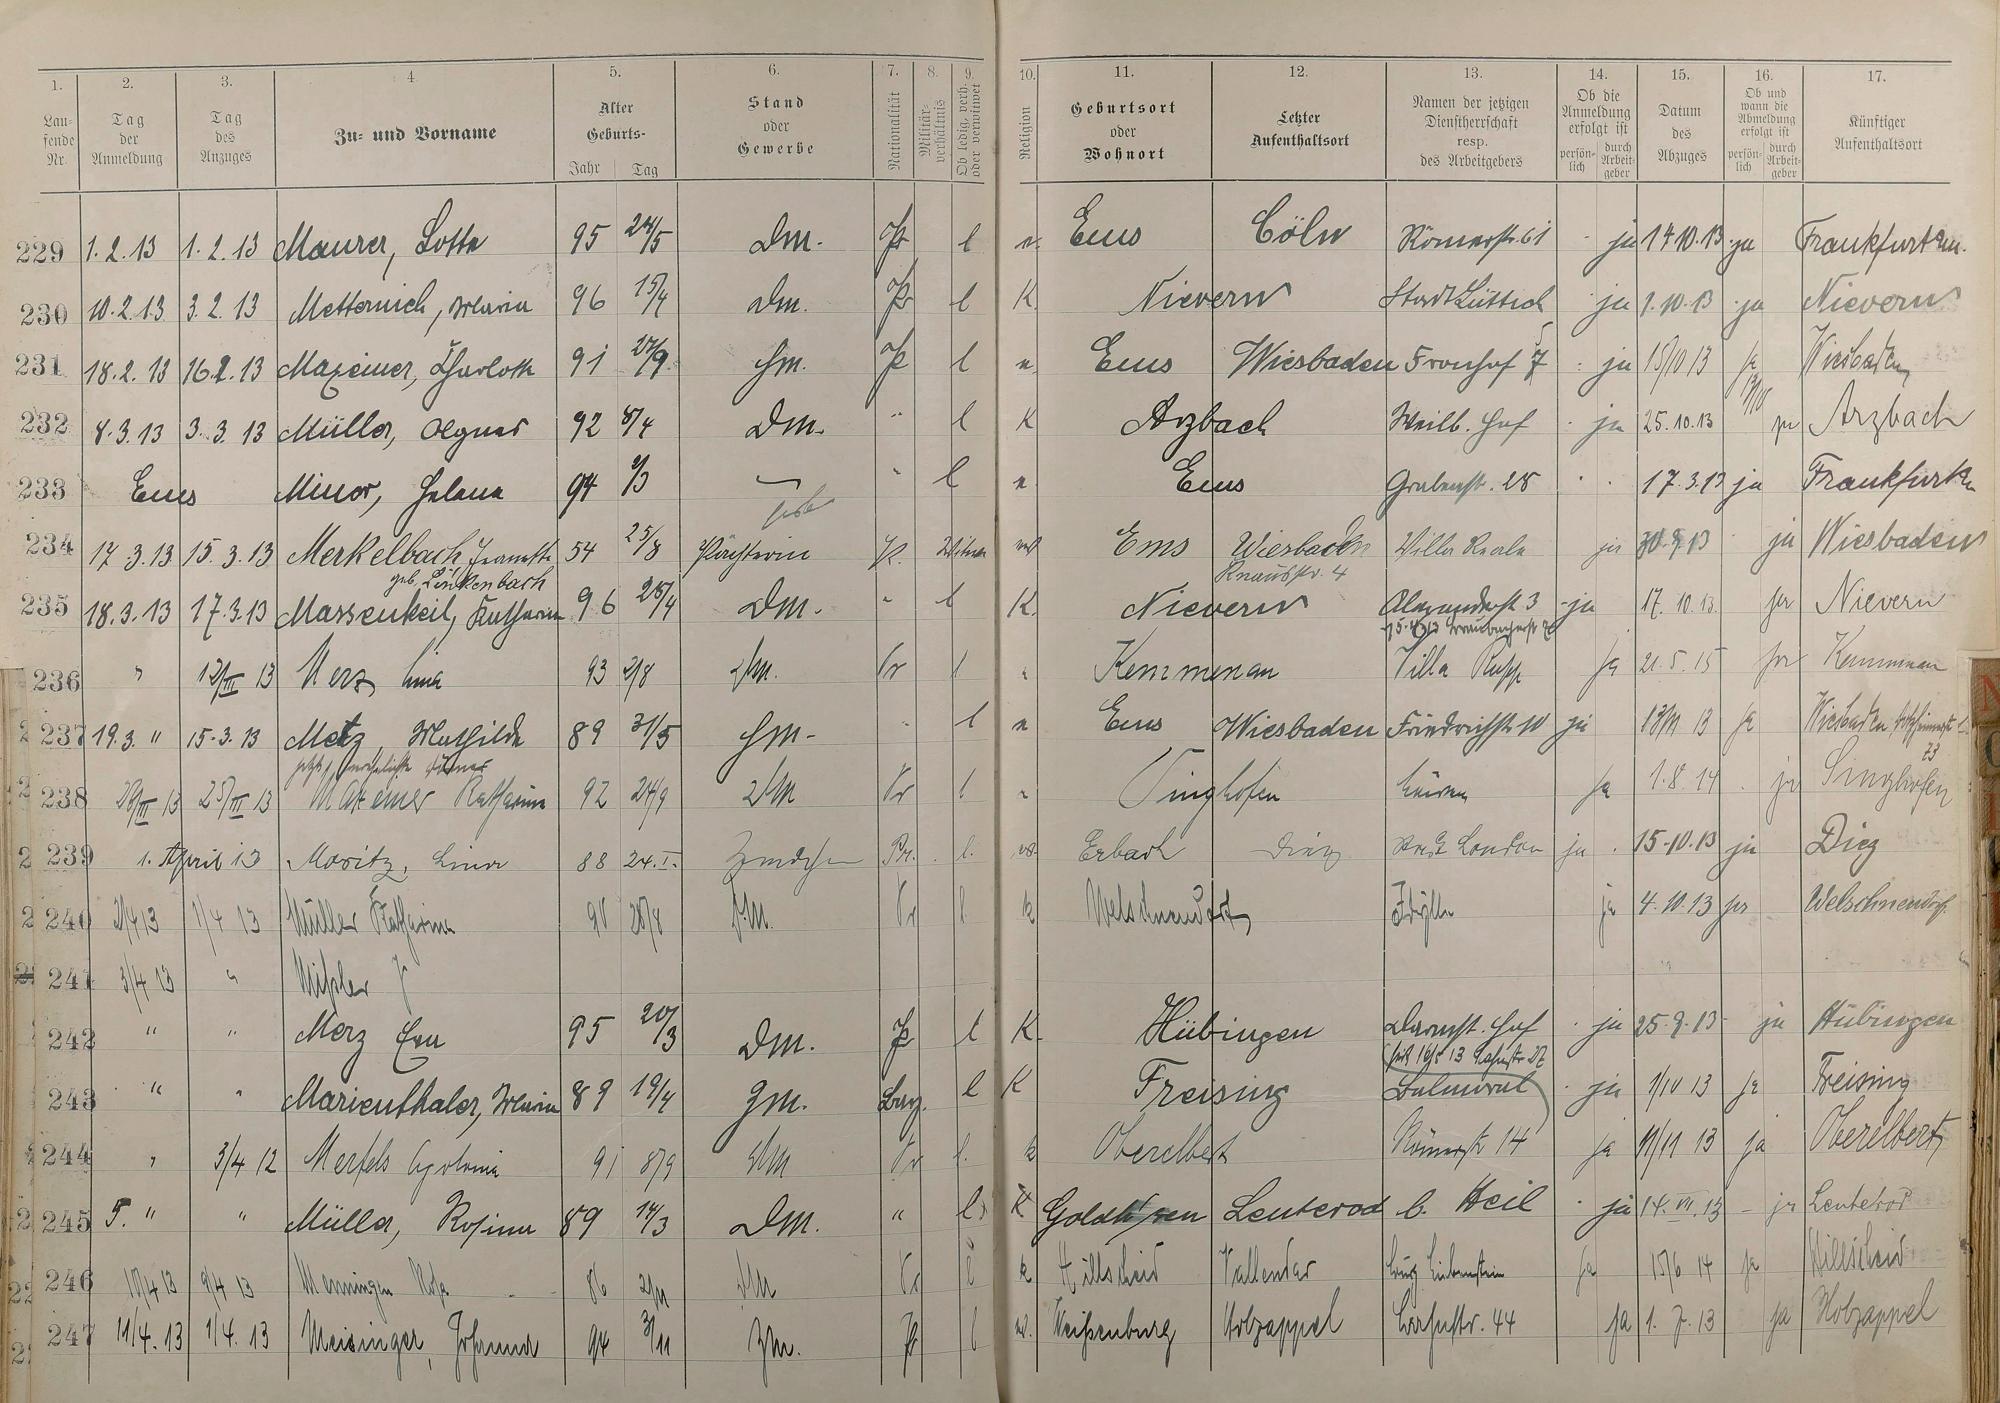 1. 2. 3. 4 5. 6. 7. 8. 9. 10. 11. 12. 13. 14. 15. 16. 17.
Laufende Nr. Tag der Anmeldung Tag des Anzuges Zu- und Vorname Alter Geburts- Jahr Tag Stand oder Gewerbe Nationalität Militärverhältnis Ob ledig, verh. oder verwitwet Religion Geburtsort oder Wohnort Letzter Aufenthaltsort Namen der jetzigen Dienstherrschaft resp. des Arbeitgebers Ob die Anmeldung erfolgt ist persönlich durch Arbeitgeber Datum des Abzuges Ob und wann die Abmeldung erfolgt ist persönlich durch Arbeitgeber Künftiger Aufenthaltsort
229 1.2.13 1.2.13 Maurer, Lotte 95 24/5 Dm. Pr l e. Ems Cöln Römerstr. 61 ja 14 10.13 ja Frankfurt a.m.
230 10.2.13 3.2.13 Metternich, Maria 96 15/4 Dm. Pr l K. Nievern Stadt Lüttich ja 1.10.13 ja Nievern
231 18.2.13 16.2.13 Maxeiner, Charlotte 91 27/9 Hm. Pr l e. Ems Wiesbaden Fronhof 7 ja 15/10 13 ja Wiesbaden
232 8.3.13 3.3.13 Müller, Agnes 92 8/4 Dm. " l K Arzbach Weilb. Hof ja 25.10.13 ja Arzbach
233 Ems Minor, Helene 94 9/3 — " l e. Ems Grabenst. 28 17.3.13 ja Frankfurt
234 17.3.13 15.3.13 Merkelbach, Jeanette 54 25/8 Pr. Witwe Ems Wiesbaden Villa ja 30.9.13 ja Wiesbaden
geb. Linkenbach Knausstr. 4
235 18.3.13 17.3.13 Massenkeil, Katharina 96 28/4 Dm. " l K. Nievern Alexanderst 3 ja 17.10.13. ja Nievern
236 " 12/III 13 Merz Lina 93 2/8 Dm. Pr l " Kemmenau Villa Rupp ja 21.5.15 ja Kemmenau
237 19.3. " 15.3.13 Metz, Mathilde 89 31/5 Hm- l e Ems Wiesbaden Friedrichst 10 ja 13 ja Wiesbaden
73
238 28/III 13 25/III 13 Maxeiner Katharina 92 24/9 Dm Pr l " Singhofen ja 1.8.14 ja Singhofen
239 1. April 13 Moritz, Lina 88 24.I. Pr. l. Erbach Diez Stadt London ja 15.10.13 ja Diez
240 2/4 13 1/4 13 Müller Katharina 28/8 Dm. Pr l k Welschneudorf Idylle ja 4.10.13 ja Welschneudorf
241 3/4 13 " Mißler
242 " " Merz Eva 95 20/3 Dm. Pr l K. Hübingen Darmst. Hof ja 25.9.13 ja Hübingen
243 " " Marienthaler, Maria 89 19/4 Zm. Bay. l K Freising Balmoral ja 1/10 13 ja Freising
244 " 3/4 12 Merfels Apolonia 91 8/9 Dm Pr l. k Oberelbert Römerstr 14 ja 11/11 13 ja Oberelbert
245 5. " " Müller, Rosina 89 14/3 Dm. " l K Goldhausen Leuterod b. Heil ja 14.VII.13 ja Leuterod
246 10/4 13 9/4 13 Menningen Rosa 86 2/11 Dm Pr l k Hillscheid Vallendar ja 15/6 14 ja Hillscheid
247 11/4.13 1/4.13 Meisinger, Johanna 94 3/11 Zm. Pr l Weißenburg Holzappel 44 ja 1.7.13 ja Holzappel